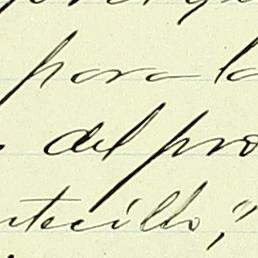 para la
del pro
ntecillo,"